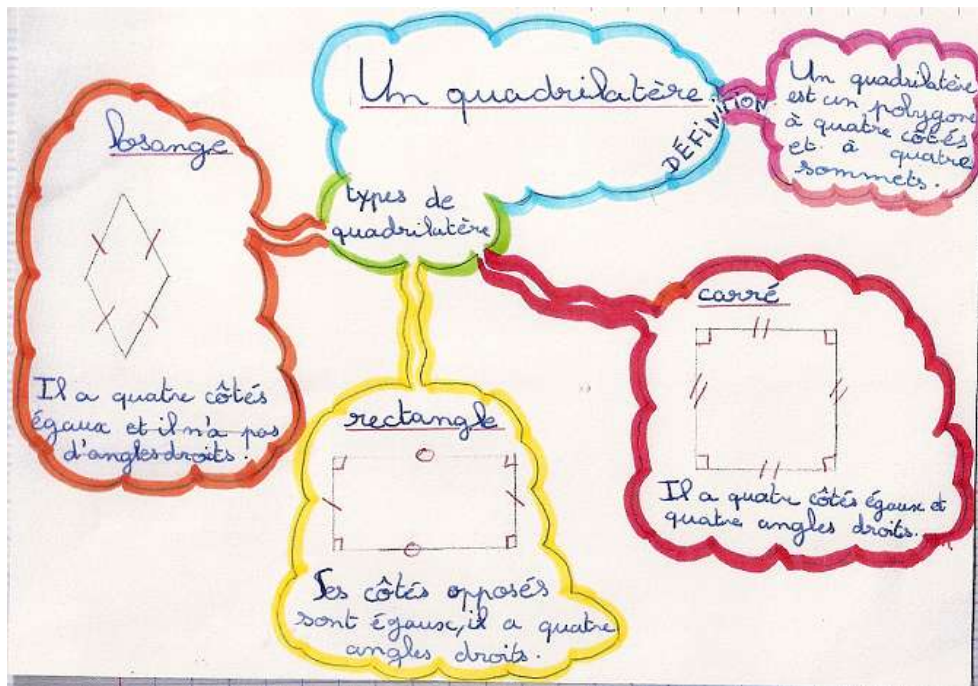 Un quadrilatère
DÉFINITION
Un quadrilatère
est un polygone
à quatre côtés
et à quatre
sommets.
types de
quadrilatère
losange
Il a quatre côtés
égaux et il n'a pas
d'angles droits.
rectangle
Ses côtés opposés
sont égaux, il a quatre
angles droits.
carré
Il a quatre côtés égaux et
quatre angles droits.